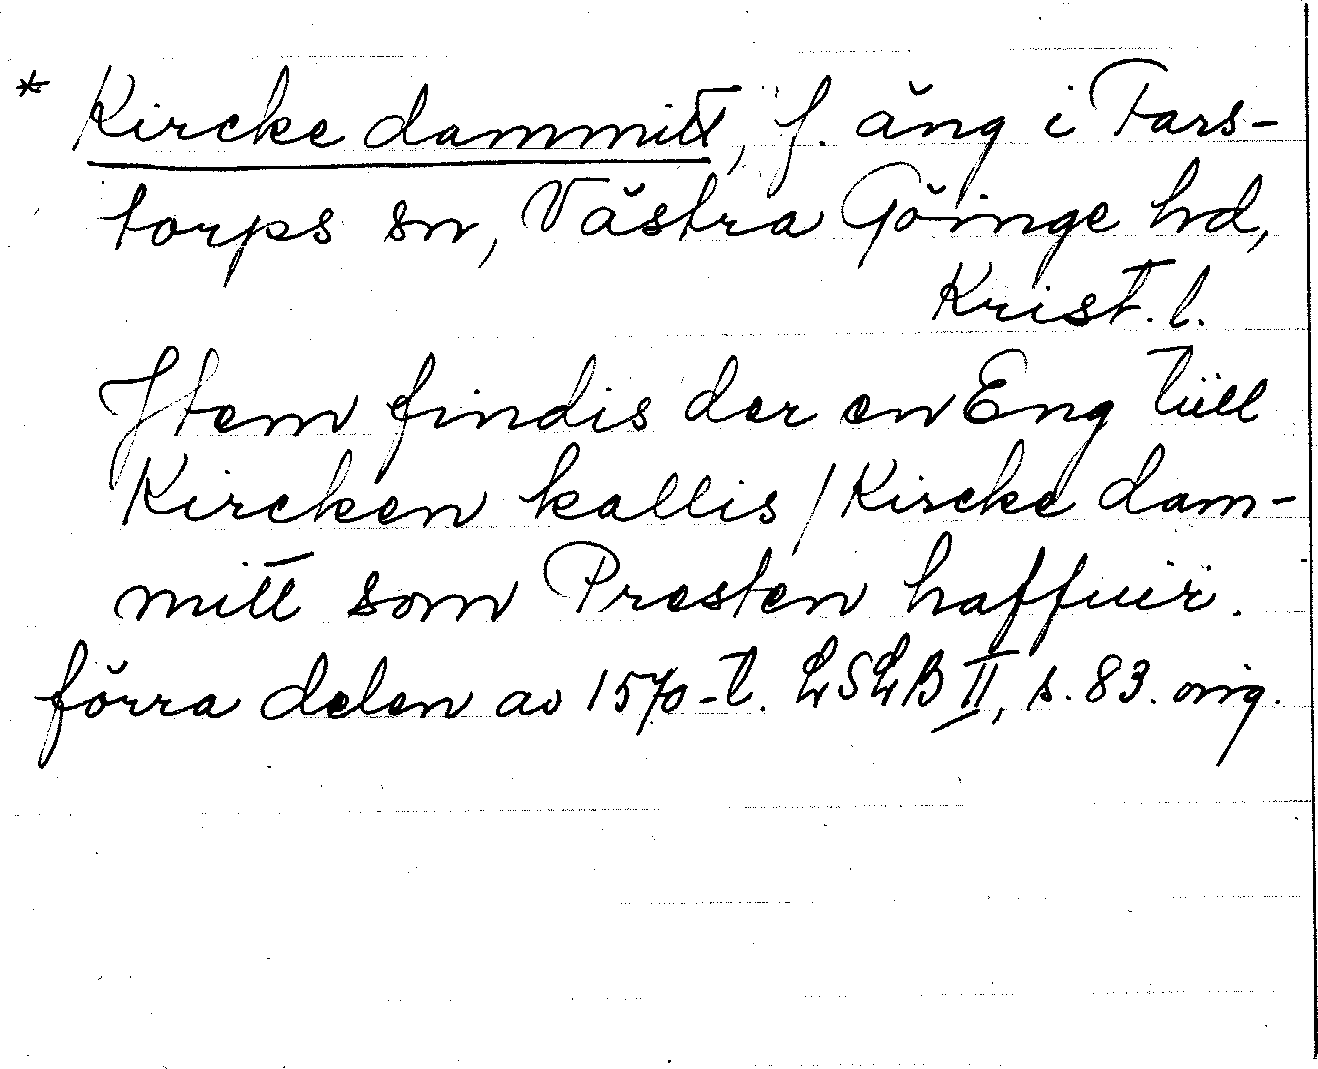 * Kircke dammitt, f. äng i Fars-
torps sn, Västra Göinge hd,
Krist. l.
Jtem findis der en Eng tüll
Kircken kallis / Kircke dam-
mitt som Presten haffuer.
förra delen av 1570-t. LSLB II, s. 83. orig.